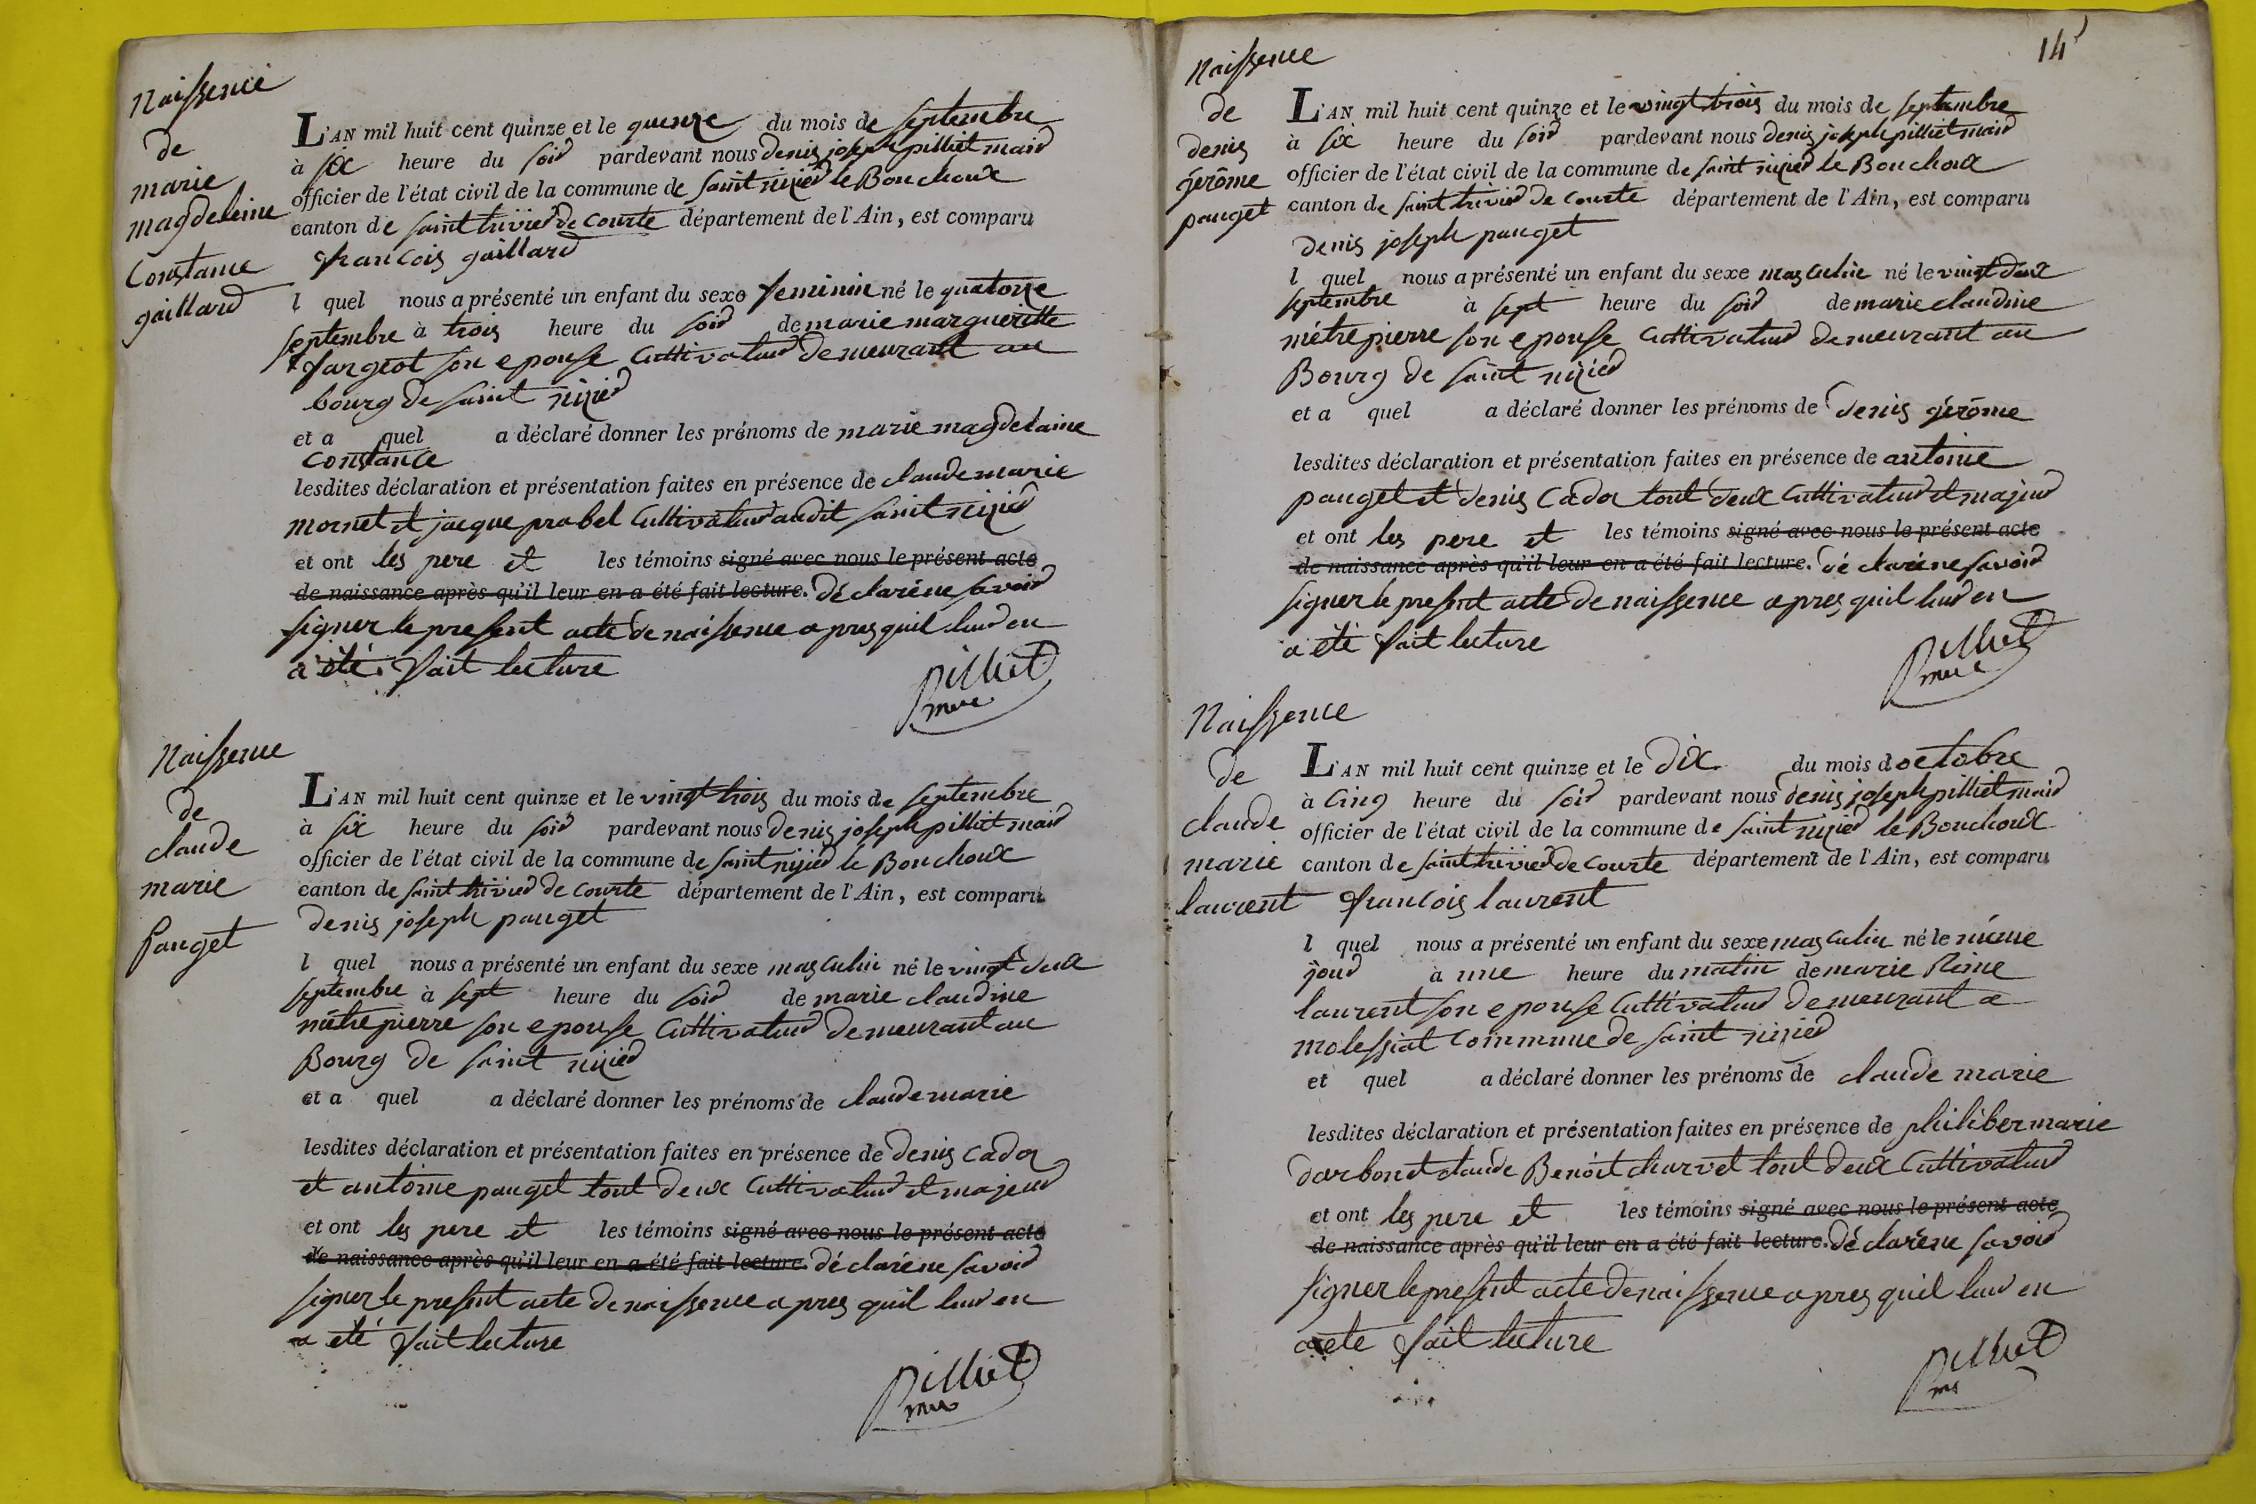 Naissence
de
marie
magdeleine
Constance
gaillard
L'AN mil huit cent quinze et le quenze du mois de septembre
à six heure du soir pardevant nous denis joseph pilliet maire
officier de l'état civil de la commune de saint nizier le Bouchoux
canton de saint trivier de courte département de l'Ain, est comparu
francois gaillard
l quel nous a présenté un enfant du sexe feminin né le quatorze
septembre à trois heure du soir de marie marguerette
fargeot son epouse Cultivateur demeurant au
bourg de saint nizier
et a quel a déclaré donner les prénoms de marie magdelaine
Constance
lesdites déclaration et présentation faites en présence de claude marie
mornet et jacque probel Cultivateur audit saint nizier
et ont les pere et les témoins signé avec nous le présent acte
de naissance après qu'il leur en a été fait lecture. déclaréne savoir
signer le present acte de naissence apres quil leur en
a été fait lecture
Pilliet
mere
Naissence
de
claude
marie
Pauget
L'AN mil huit cent quinze et le vingt trois du mois de septembre
à six heure du soir pardevant nous denis joseph pilliet maire
officier de l'état civil de la commune de saint nizier le Bouchoux
canton de saint trivier de courte département de l'Ain, est comparu
denis joseph pauget
l quel nous a présenté un enfant du sexe masculin né le vingt deux
septembre à sept heure du soir de marie claudine
métrepierre son epouse Cultivateur demeurant au
Bourg de saint nizier
et a quel a déclaré donner les prénoms de claude marie
lesdites déclaration et présentation faites en présence de denis Cador
et antoine pauget tout deux Cultivateur et majeur
et ont les pere et les témoins signé avec nous le présent acte
de naissance après qu'il leur en a été fait lecture. déclaréne savoir
signer le present acte de naissence apres quil leur en
a été fait lecture
Pilliet
mere
14
Naissence
de
denis
gérôme
pauget
L'AN mil huit cent quinze et le vingt trois du mois de septembre
à six heure du soir pardevant nous denis joseph pilliet maire
officier de l'état civil de la commune de saint nizier le Bouchoux
canton de saint trivier de courte département de l'Ain, est comparu
denis joseph pauget
l quel nous a présenté un enfant du sexe masculin né le vingt deux
septembre à sept heure du soir de marie claudine
métrepierre son epouse Cultivateur demeurant au
Bourg de saint nizier
et a quel a déclaré donner les prénoms de denis gérôme
lesdites déclaration et présentation faites en présence de antoine
pauget et denis Cador tout deux Cultivateur et majeur
et ont les pere et les témoins signé avec nous le présent acte
de naissance après qu'il leur en a été fait lecture. déclaréne savoir
signer le present acte de naissence apres quil leur en
a été fait lecture
Pilliet
mere
Naissence
de
claude
marie
laurent
L'AN mil huit cent quinze et le dix du mois d octobre
à Cinq heure du soir pardevant nous denis joseph pilliet maire
officier de l'état civil de la commune de saint nizier le Bouchoux
canton de saint trivier de courte département de l'Ain, est comparu
francois laurent
l quel nous a présenté un enfant du sexe masculin né le même
jour à une heure du matin de marie Reine
laurent son epouse Cultivateur demeurant a
molessiat Commune de saint nizier
et quel a déclaré donner les prénoms de claude marie
lesdites déclaration et présentation faites en présence de philiber marie
darbon et claude Benoit charvet tout deux Cultivateur
et ont les pere et les témoins signé avec nous le présent acte
de naissance après qu'il leur en a été fait lecture. déclaréne savoir
signer le present acte de naissence apres quil leur en
a ete fait lecture
Pilliet